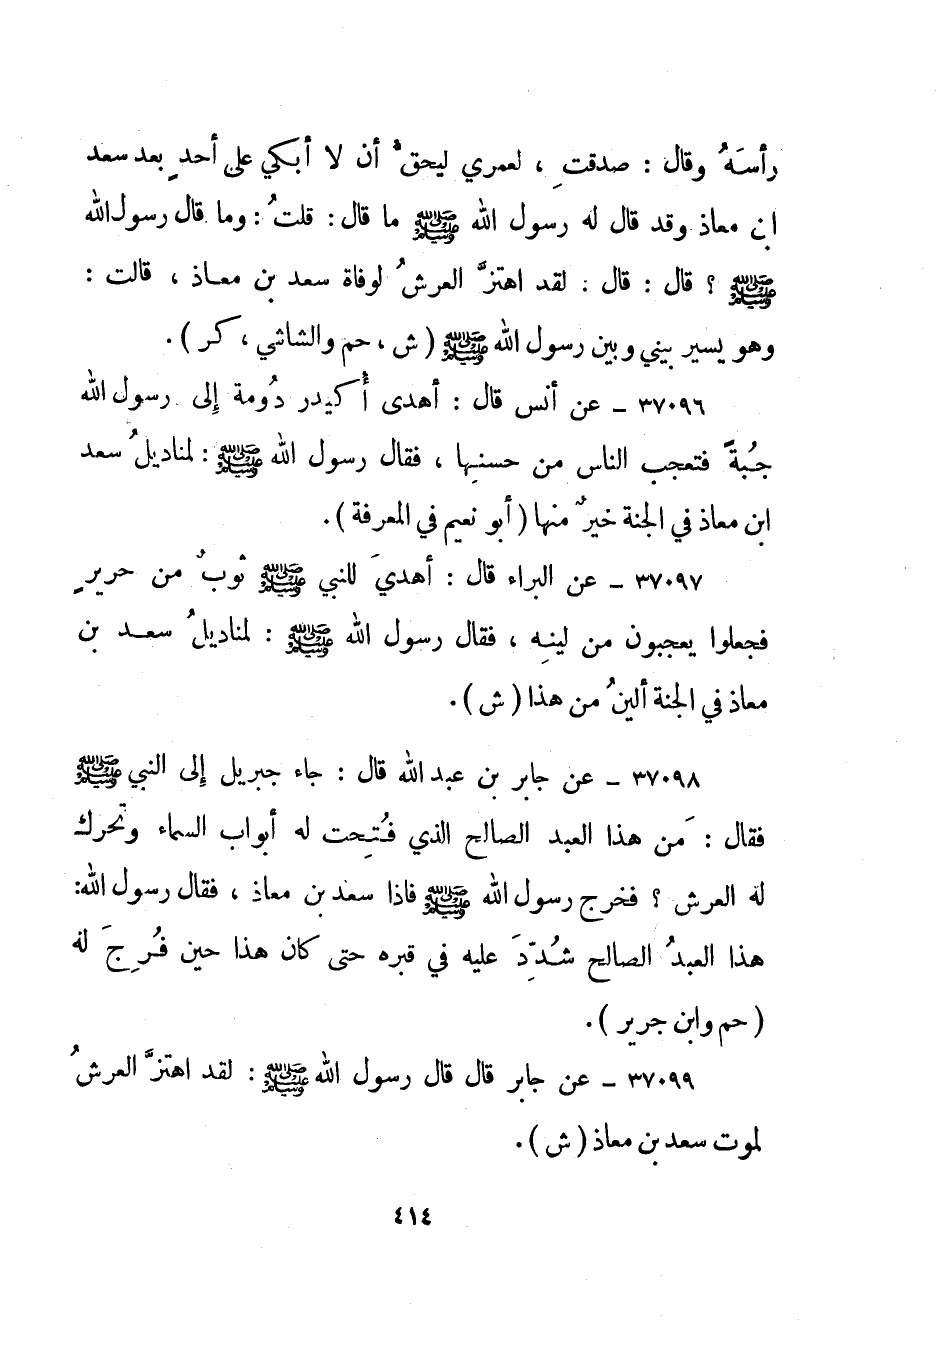 رأسَهُ وقال : صدقتِ ، لعمري ليحقُّ أن لا أبكي على أحدٍ بعد سعد
ابن معاذ وقد قال له رسول الله ﷺ ما قال : قلتُ : وما قال رسول الله
ﷺ ؟ قال : قال : لقد اهتزَّ العرشُ لوفاة سعد بن معاذ ، قالت :
وهو يسير بيني وبين رسول الله ﷺ ( ش ، حم والشاشي ، كر ) .
٣٧٠٩٦ ـ عن أنس قال : أهدى أُكيدر دُومة إلى رسول الله
جُبةً فتعجب الناس من حسنِها ، فقال رسول الله ﷺ : لمناديلُ سعد
ابن معاذ في الجنة خيرٌ منها ( أبو نعيم في المعرفة ) .
٣٧٠٩٧ ـ عن البراء قال : أهديَ للنبي ﷺ ثوبٌ من حريرٍ
فجعلوا يعجبون من لينِه ، فقال رسول الله ﷺ : لمناديلُ سعد بن
معاذ في الجنة ألينُ من هذا ( ش ) .
٣٧٠٩٨ ـ عن جابر بن عبد الله قال : جاء جبريل إلى النبي ﷺ
فقال : مَن هذا العبد الصالح الذي فُتِحت له أبواب السماء وتحرك
له العرش ؟ فخرج رسول الله ﷺ فاذا سعد بن معاذ ، فقال رسول الله :
هذا العبدُ الصالح شُدِّدَ عليه في قبره حتى كان هذا حين فُرِجَ له
( حم وابن جرير ) .
٣٧٠٩٩ ـ عن جابر قال قال رسول الله ﷺ : لقد اهتزَّ العرشُ
لموت سعد بن معاذ ( ش ) .
٤١٤